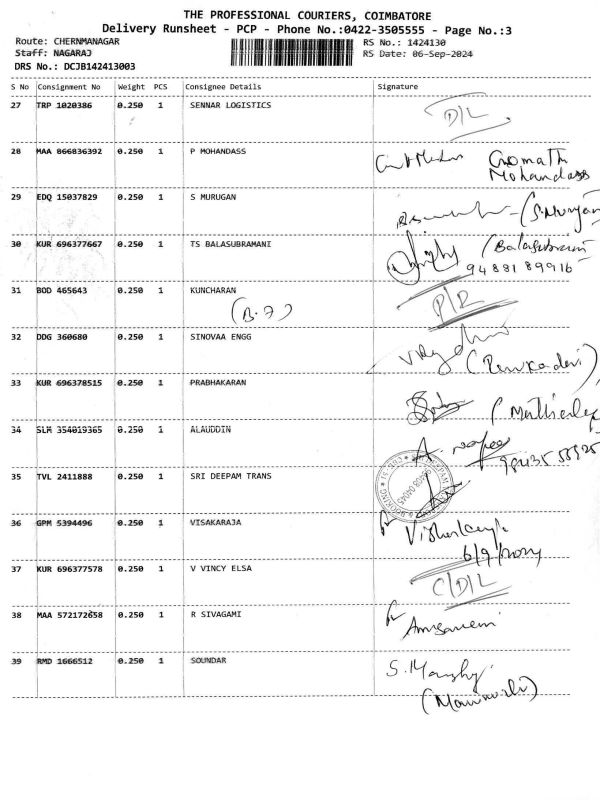 THE PROFESSIONAL COURIERS, COIMBATORE
Delivery Runsheet - PCP - Phone No.:0422-3505555 - Page No.:3
Route: CHERNMANAGAR
RS No.: 1424130
Staff: NAGARAJ
RS Date: 06-Sep-2024
DRS No.: DCJB142413003
S No Consignment No Weight PCS Consignee Details Signature
27 TRP 1020386 0.250 1 SENNAR LOGISTICS D/L
28 MAA 866836392 0.250 1 P MOHANDASS Gomathi Mohandass
29 EDQ 15037829 0.250 1 S MURUGAN (S.Murugan
30 KUR 696377667 0.250 1 TS BALASUBRAMANI (Balasubramani
9488189916
31 BOD 465643 0.250 1 KUNCHARAN
(B.7)
32 DDG 360680 0.250 1 SINOVAA ENGG (Renukadevi)
33 KUR 696378515 0.250 1 PRABHAKARAN
34 SLM 354019365 0.250 1 ALAUDDIN
35 TVL 2411888 0.250 1 SRI DEEPAM TRANS
36 GPM 5394496 0.250 1 VISAKARAJA
6/9/2024
37 KUR 696377578 0.250 1 V VINCY ELSA C/D/L
38 MAA 572172658 0.250 1 R SIVAGAMI
39 RMD 1666512 0.250 1 SOUNDAR